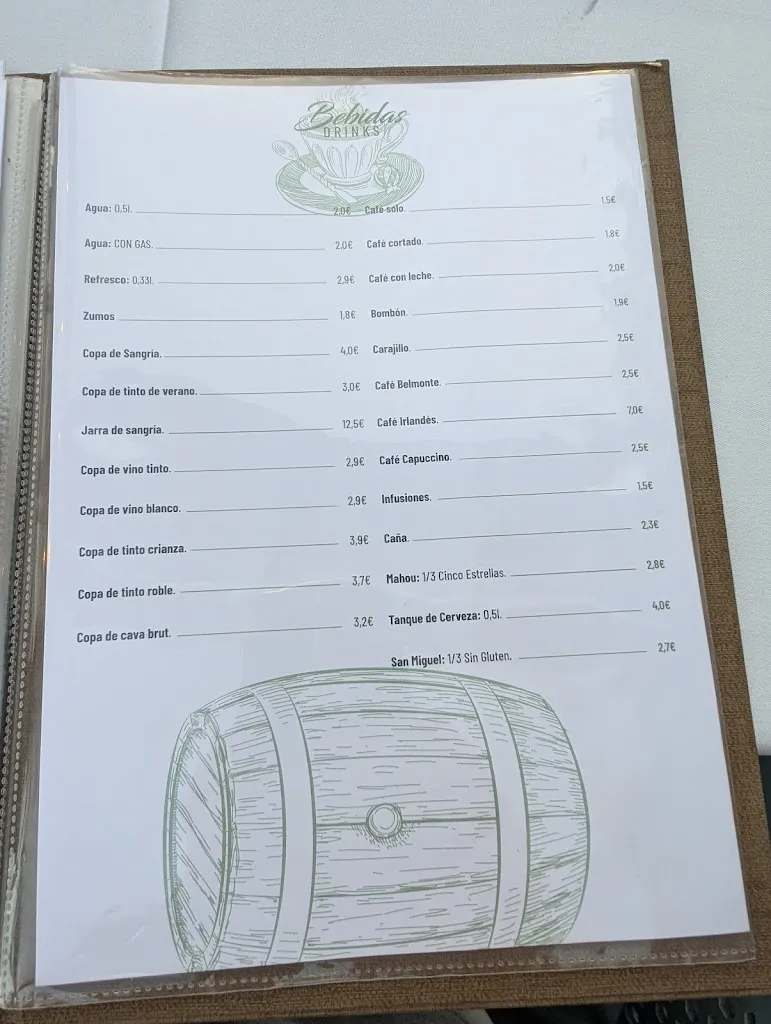 Bebidas
DRINKS
Agua: 0,5l. 2,0€
Agua: CON GAS. 2,0€
Refresco: 0,33l. 2,9€
Zumos 1,8€
Copa de Sangría. 4,0€
Copa de tinto de verano. 3,0€
Jarra de sangría. 12,5€
Copa de vino tinto. 2,9€
Copa de vino blanco. 2,9€
Copa de tinto crianza. 3,9€
Copa de tinto roble. 3,7€
Copa de cava brut. 3,2€
Café solo. 1,5€
Café cortado. 1,8€
Café con leche. 2,0€
Bombón. 1,9€
Carajillo. 2,5€
Café Belmonte. 2,5€
Café Irlandés. 7,0€
Café Capuccino. 2,5€
Infusiones. 1,5€
Caña. 2,3€
Mahou: 1/3 Cinco Estrellas. 2,8€
Tanque de Cerveza: 0,5l. 4,0€
San Miguel: 1/3 Sin Gluten. 2,7€